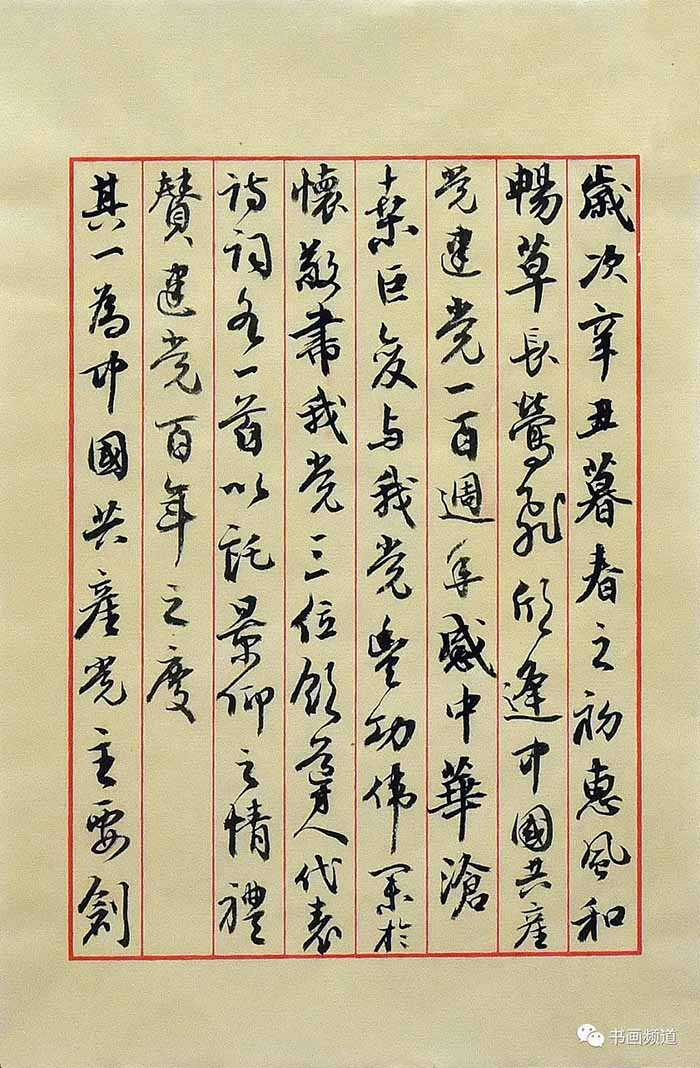 歲次辛丑暮春之初惠風和
暢草長鶯飛欣逢中國共產
党建党一百週年感中華滄
桑巨變与我党豐功偉業於
懷敬書我党三位領導人代表
詩詞各一首以託景仰之情禮
贊建党百年之慶
其一為中國共產党主要創
书画频道